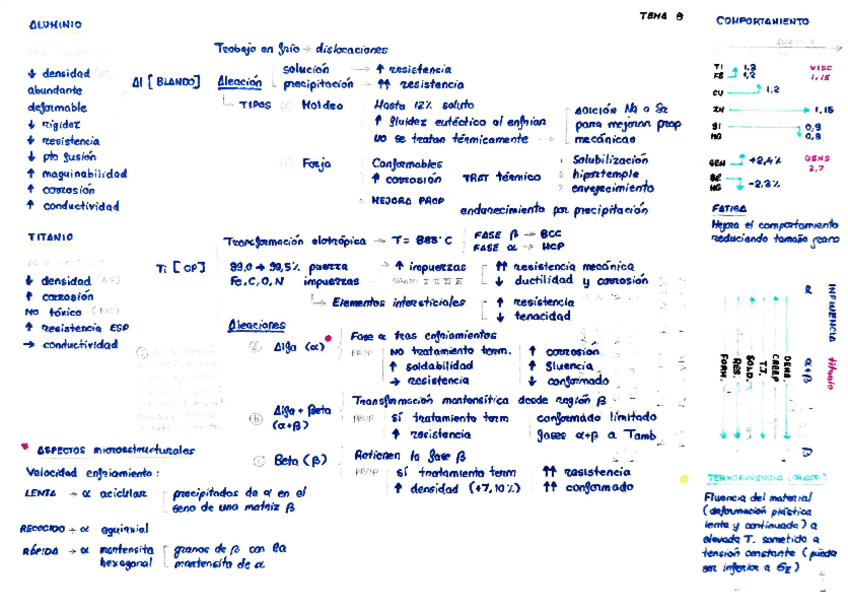 TEMA 8
ALUMINIO
↓ densidad
abundante
deformable
↓ rigidez
↓ resistencia
↓ pto fusión
↑ maquinabilidad
↑ corrosión
↑ conductividad
Trabajo en frío → dislocaciones
Al [BLANDO]
Aleación
solución → ↑ resistencia
precipitación → ↑↑ resistencia
TIPOS
Moldeo
Hasta 12% soluto
↑ fluidez eutéctico al enfriar
no se tratan térmicamente
ADICIÓN Na o Sr
para mejorar prop
mecánicas
Forja
Conformables
↑ corrosión
MEJORA PROP
TRAT térmico
solubilización
hipertemple
envejecimiento
endurecimiento por precipitación
TITANIO
↓ densidad
↑ corrosión
NO tóxico
↑ resistencia ESP
→ conductividad
Ti [CP]
Transformación alotrópica → T = 883°C
FASE β → BCC
FASE α → HCP
99,0 → 99,5% pureza
Fe, C, O, N impurezas
→ ↑ impurezas
↑↑ resistencia mecánica
↓ ductilidad y corrosión
Elementos intersticiales
↑ resistencia
↓ tenacidad
Aleaciones
Alfa (α)
Fase α tras enfriamientos
PROP
NO tratamiento term.
↑ soldabilidad
→ resistencia
↑ corrosión
↑ fluencia
↓ conformado
Alfa + Beta
(α+β)
Transformación martensítica desde región β
PROP
SÍ tratamiento term
↑ resistencia
conformado limitado
fases α+β a Tamb
Beta (β)
Retienen la fase β
PROP
SÍ tratamiento term
↑ densidad (+7,10%)
↑↑ resistencia
↑↑ conformado
ASPECTOS microestructurales
Velocidad enfriamiento:
LENTA → α acicular
precipitados de α en el
seno de una matriz β
RECOCIDO → α equiaxial
RÁPIDA → α martensita
hexagonal
granos de β con la
martensita de α
COMPORTAMIENTO
TI
FE
1,3
1,2
VISC
1,15
CU
1,2
ZN
1,15
SI
MG
0,9
0,8
GEN
+2,4%
DENS
2,7
MG
-2,3%
FATIGA
Mejora el comportamiento
reduciendo tamaño grano
INFLUENCIA titanio
α
α+β
β
FORM.
RES.
SOLD.
T.T.
CREEP
DENS.
TERMOFLUENCIA (CREEP)
Fluencia del material
(deformación plástica
lenta y continuada) a
elevada T. sometido a
tensión constante (puede
ser inferior a σE)